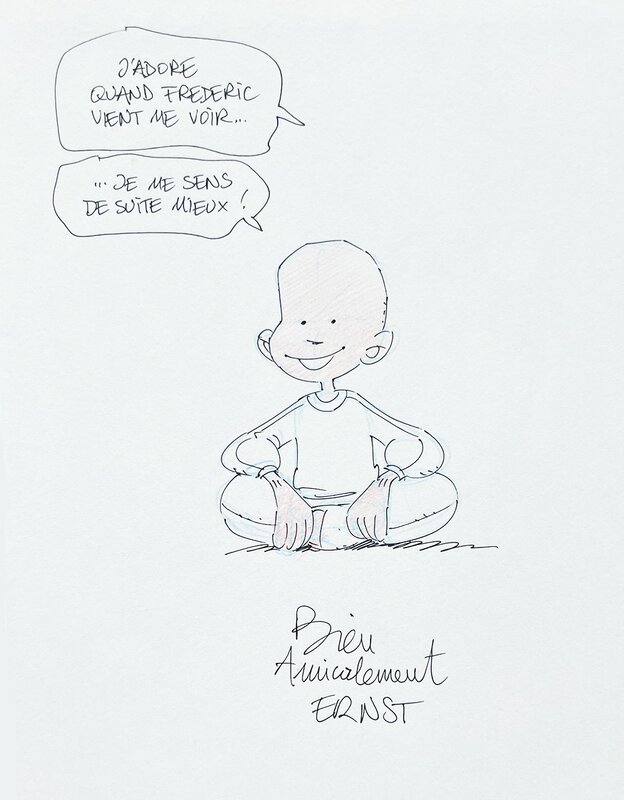 J'ADORE
QUAND FREDERIC
VIENT ME VOIR...
... JE ME SENS
DE SUITE MIEUX !
Bien
Amicalement
ERNST